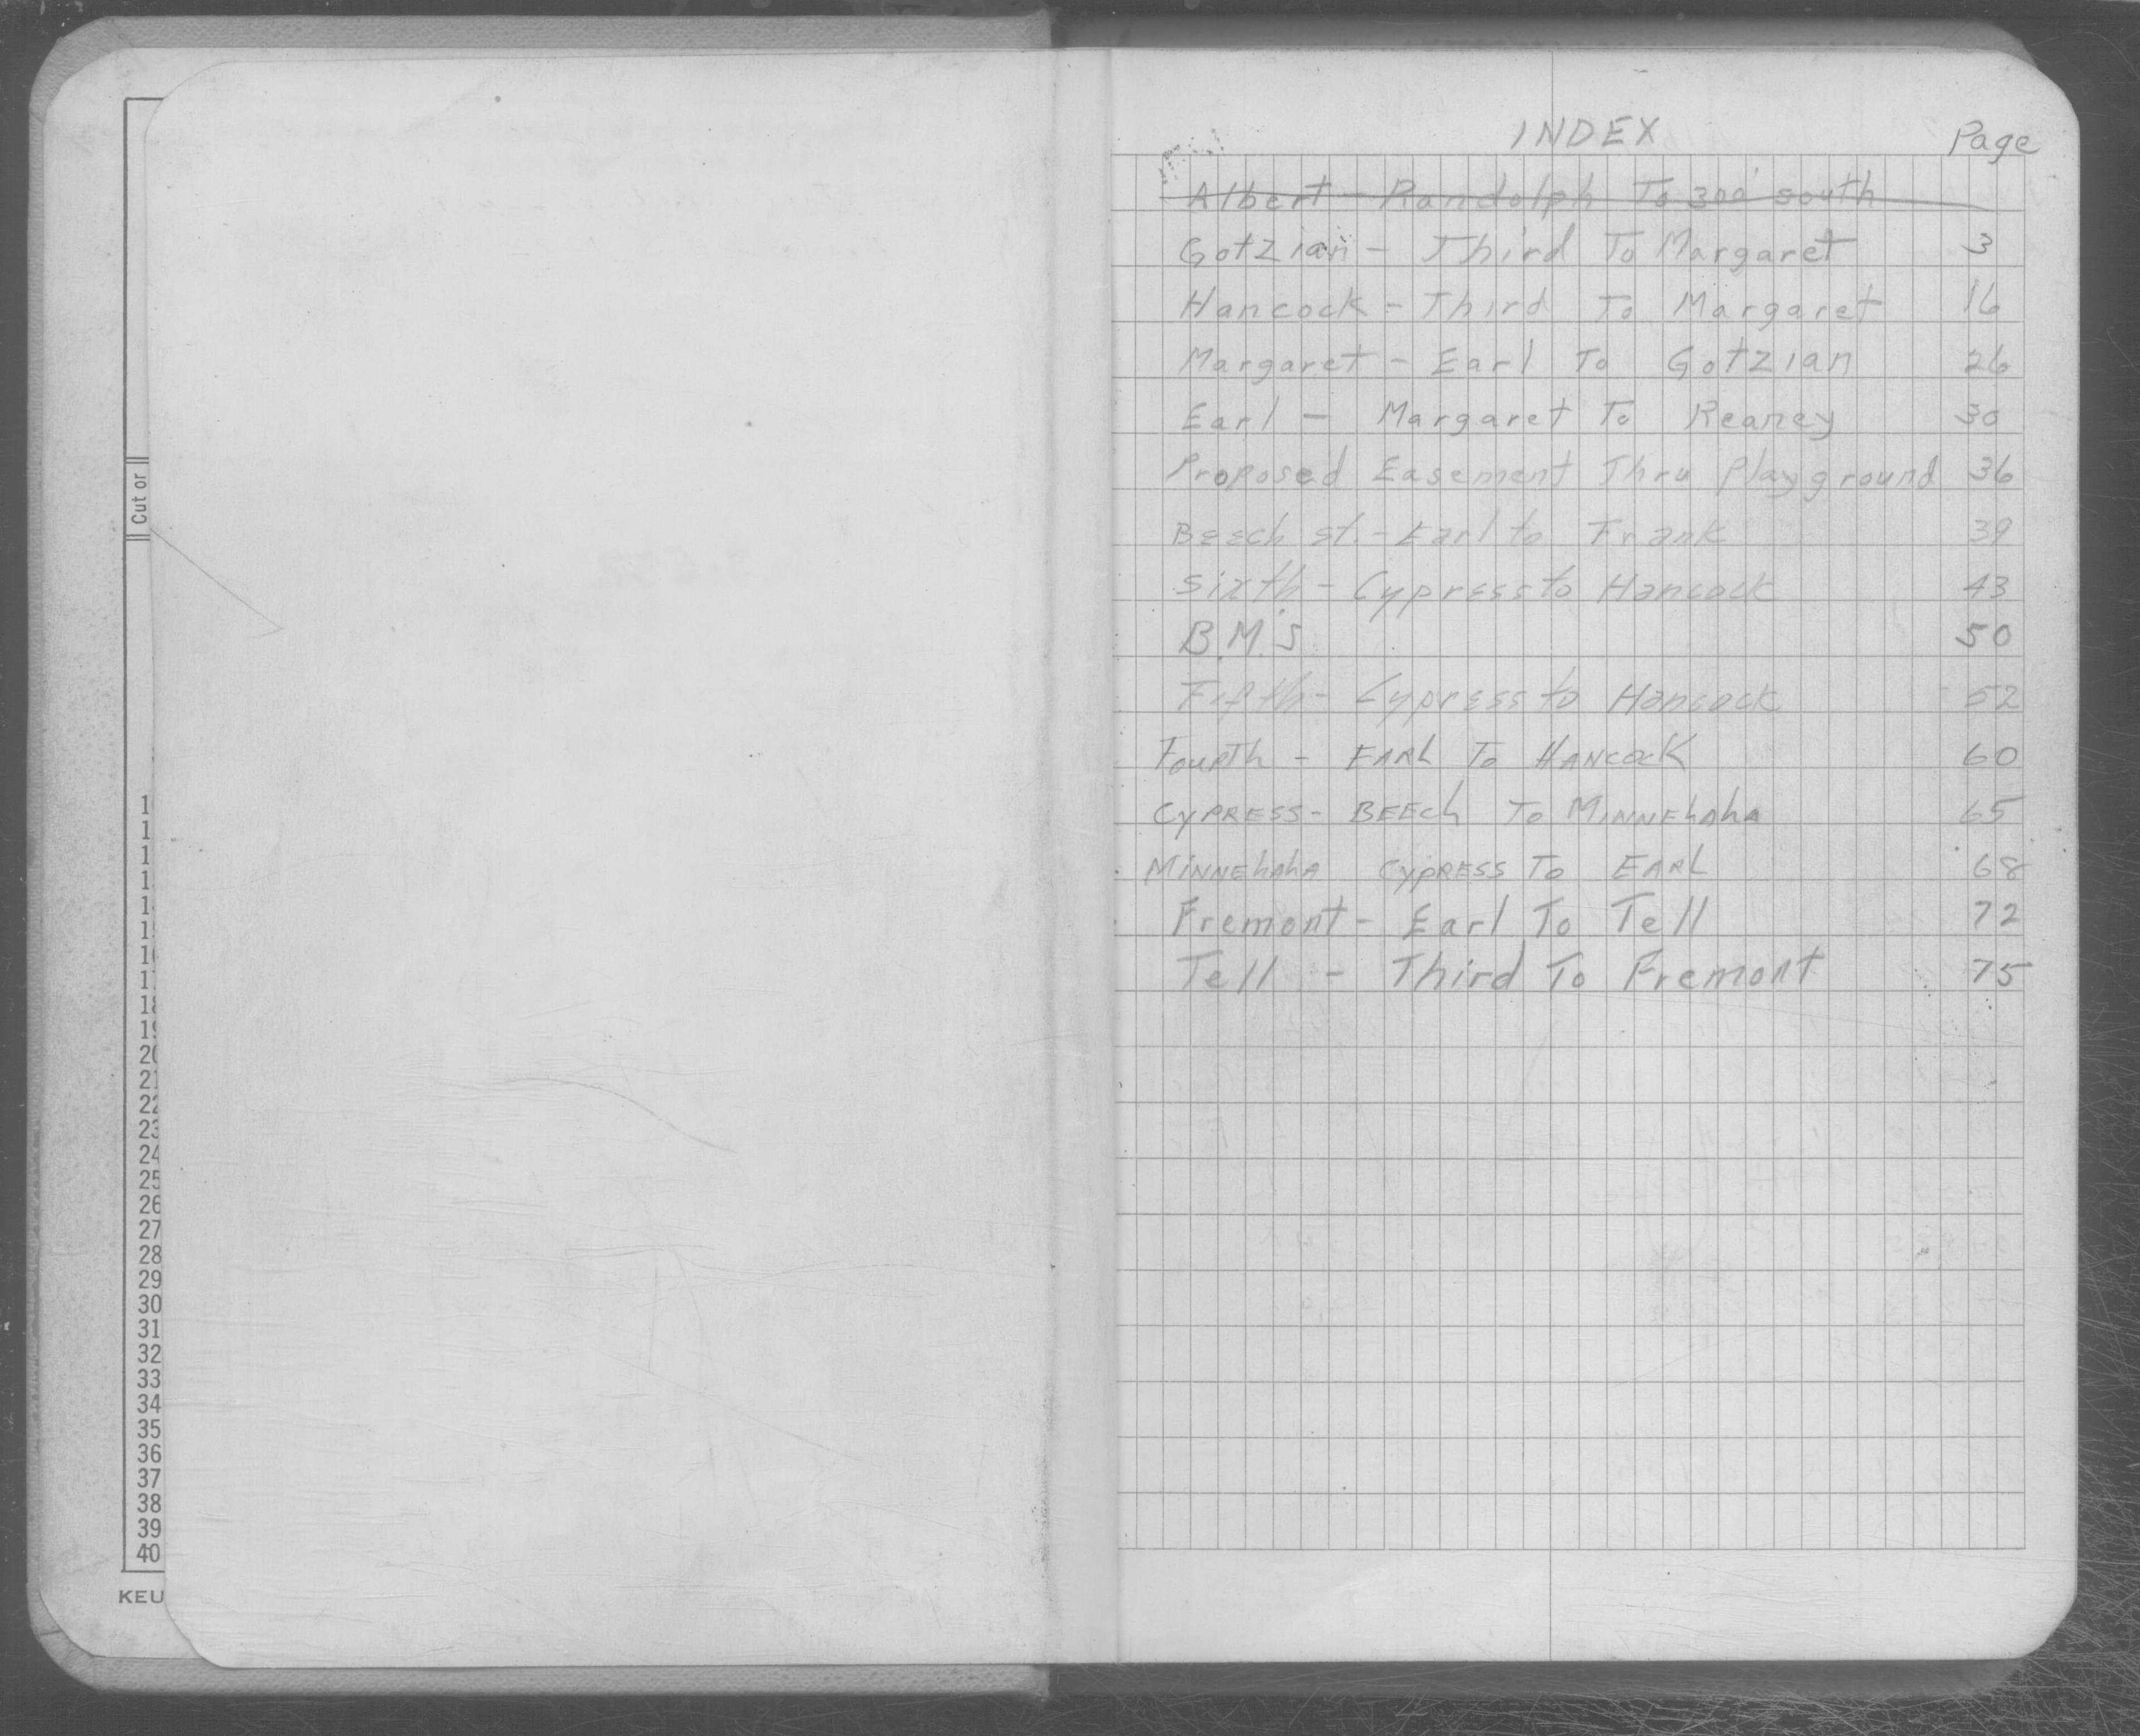 Cut or
1
1
1
1
14
15
16
17
18
19
20
21
22
23
24
25
26
27
28
29
30
31
32
33
34
35
36
37
38
39
40
KEU
INDEX Page
Albert - Randolph To 300' south
Gotzian - Third To Margaret 3
Hancock - Third To Margaret 16
Margaret - Earl To Gotzian 26
Earl - Margaret To Reaney 30
Proposed Easement Thru Playground 36
Beech st. - Earl to Frank 39
Sixth - Cypress to Hancock 43
B.M.'s 50
Fifth - Cypress to Hancock 52
Fourth - EARL To HANCOCK 60
CYPRESS - BEECH To MINNEhAhA 65
MINNEhAhA CYPRESS To EARL 68
Fremont - Earl To Tell 72
Tell - Third To Fremont 75